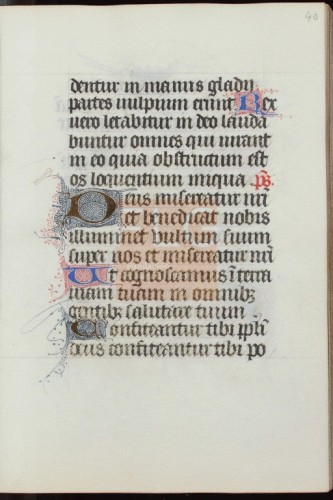 40
dentur in manus gladij
partes uulpium erunt Rex
uero letabitur in deo lauda
buntur omnes qui iurant
in eo quia obstructum est
os loquentium iniqua ps.
Deus misereatur nr̄i
et benedicat nobis
illuminet vultum suum
super nos et misereatur nr̄i
Ut cognoscamus ī terra
uiam tuam in omnibꝫ
gentibꝫ salutare tuum
Confiteantur tibi ppl̄i
deus confiteantur tibi po